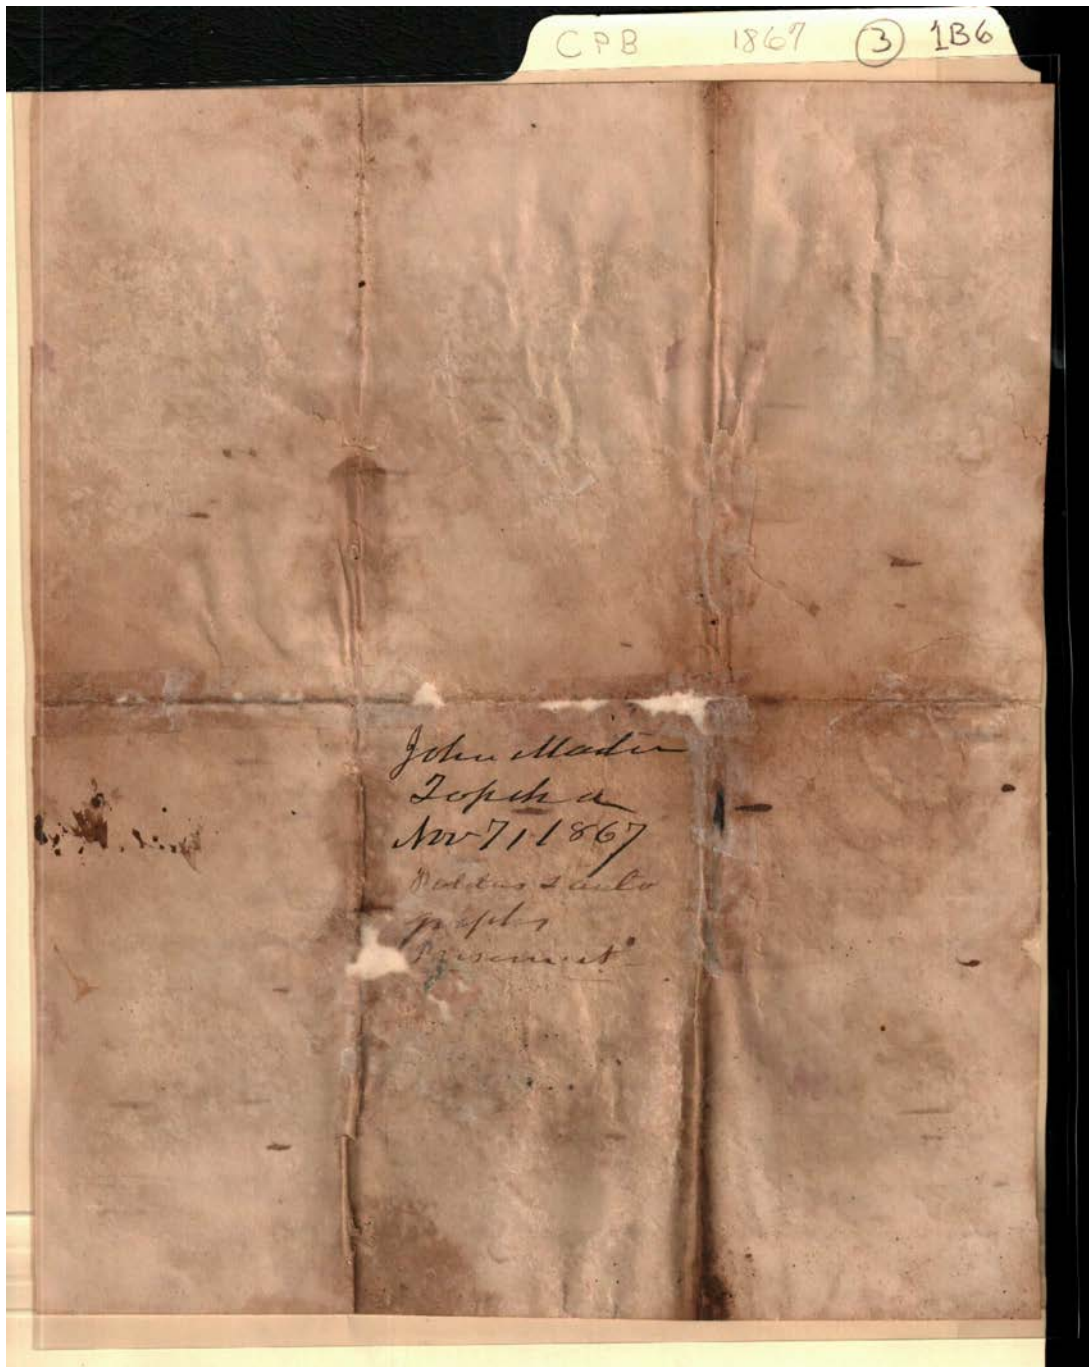 CPB 1867 3 1B6
John Martin
Topeka
Nov 7, 1867
& auto
graphs